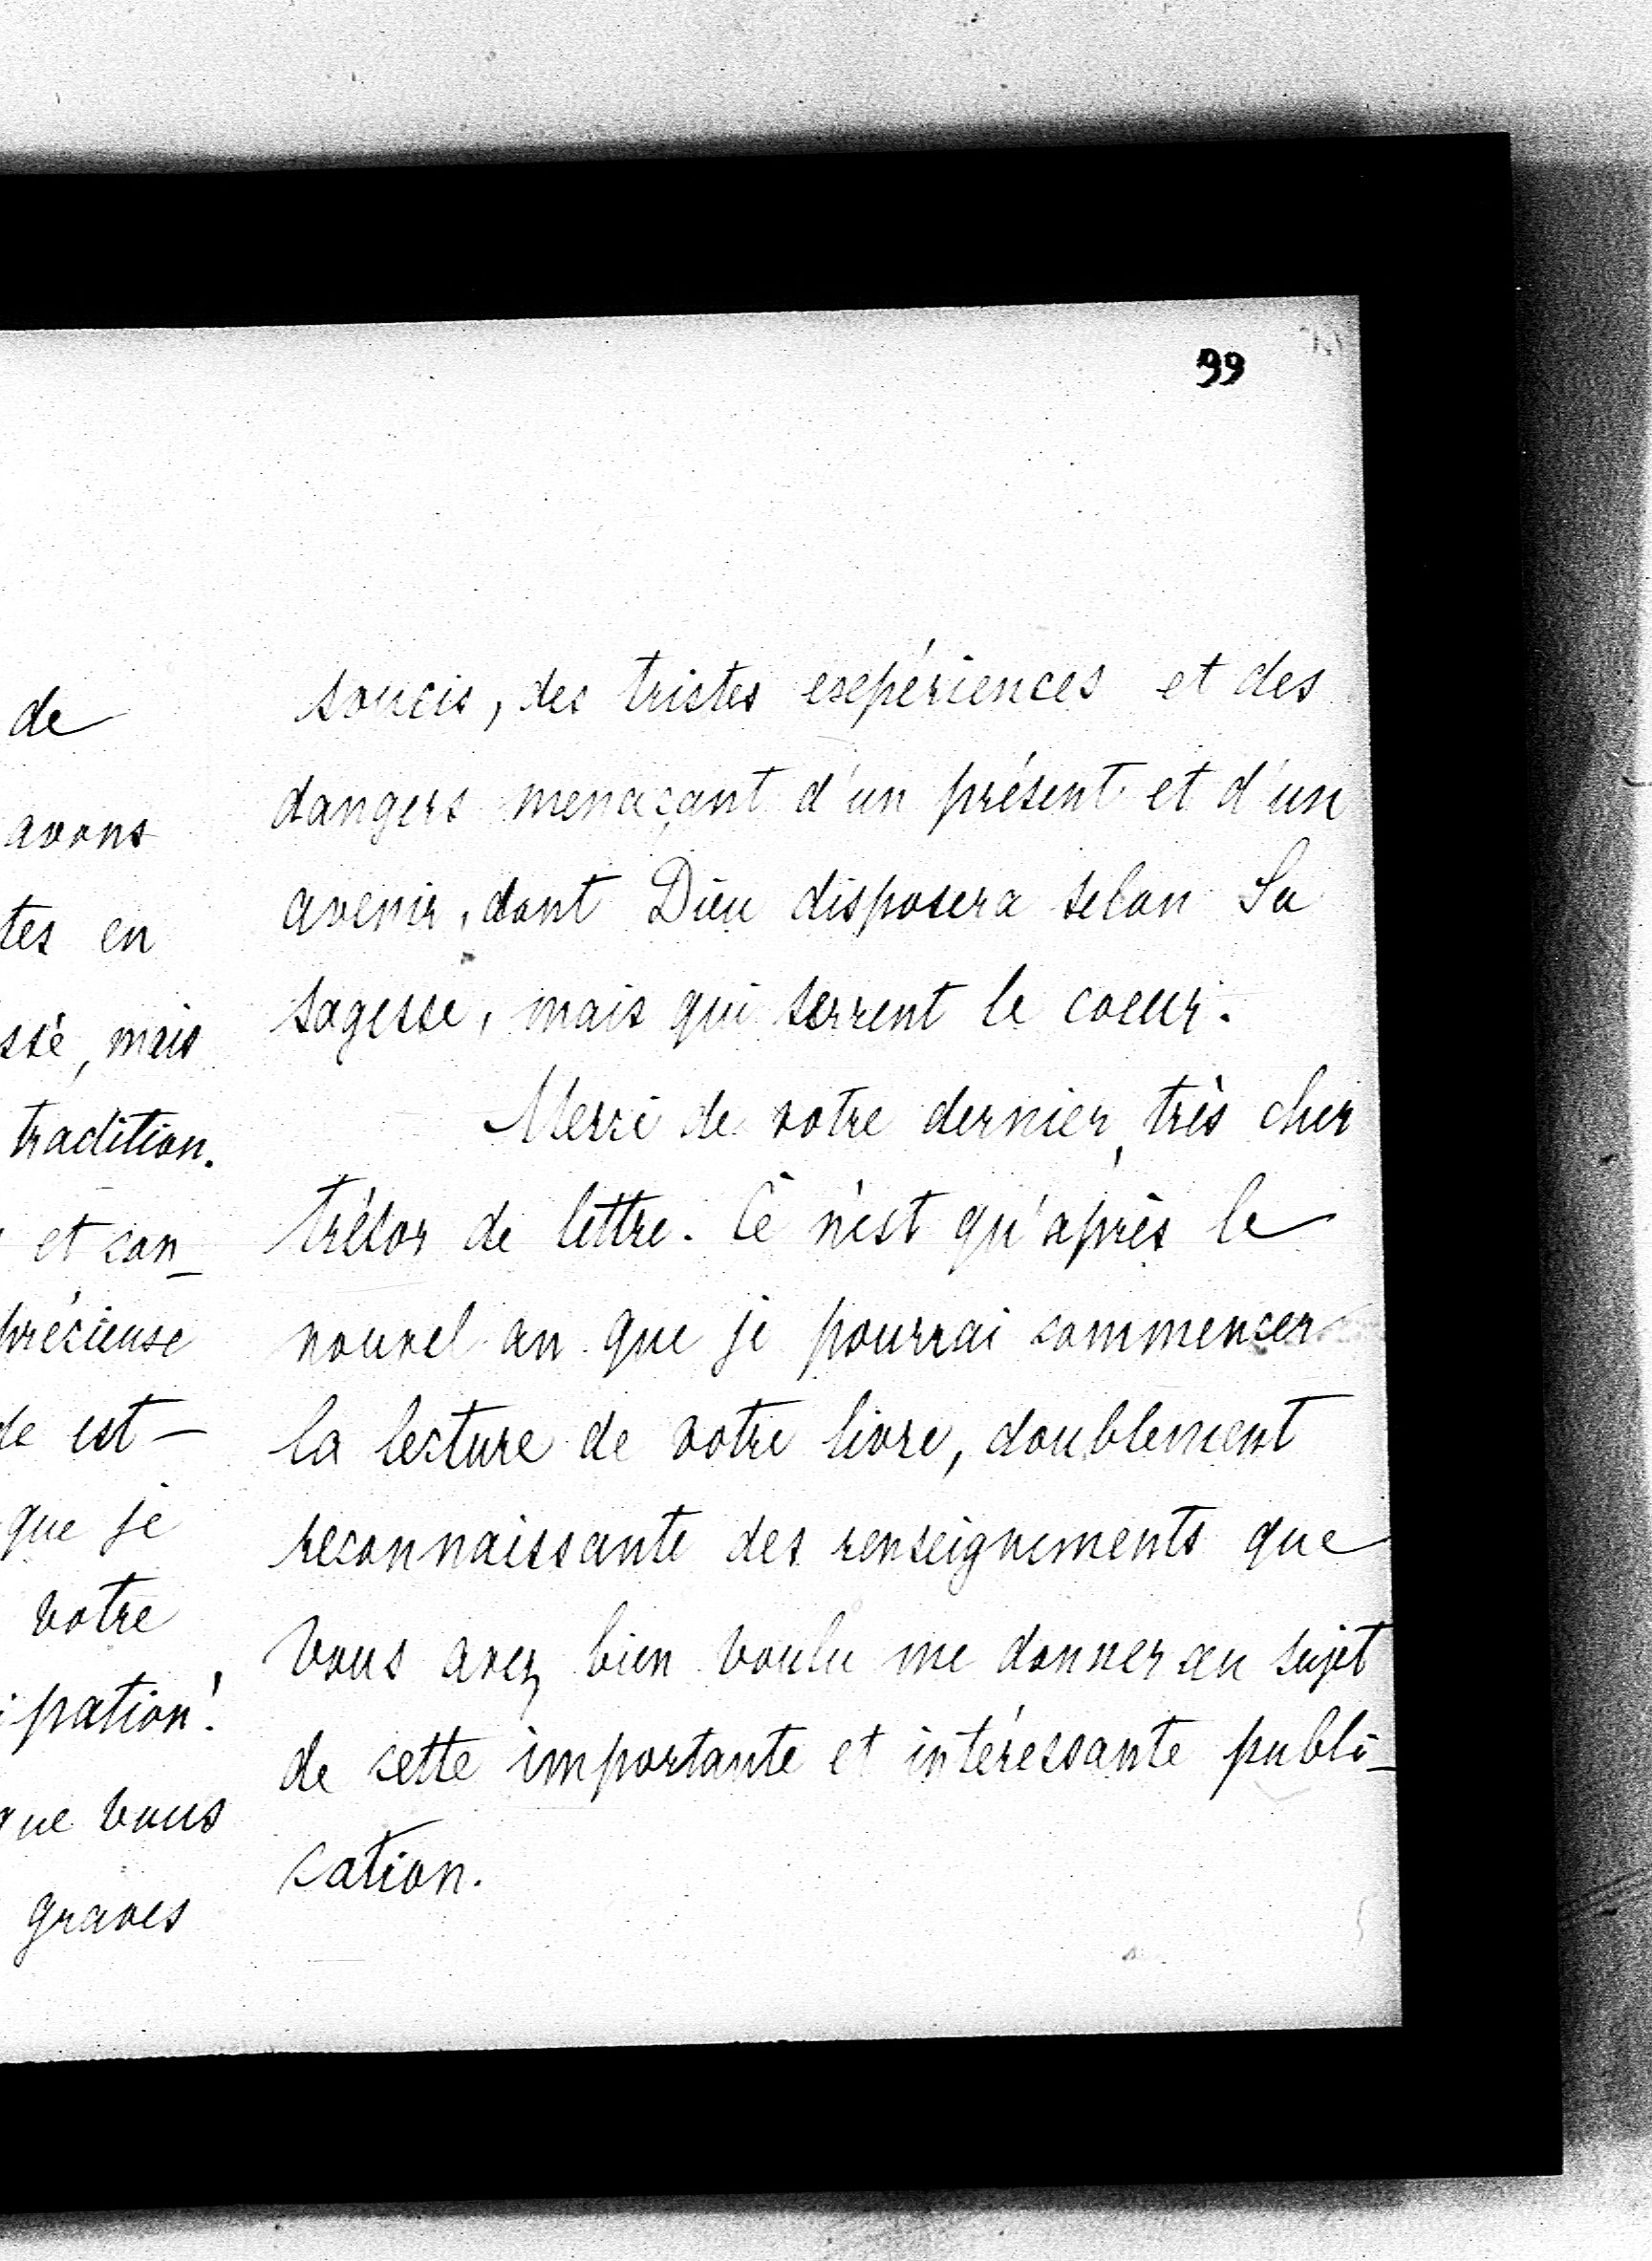 99
de
avons
tes en
ssé, mais
tradition.
et con_
précieuse
de est —
que je
votre
ipation!
que vous
graves
soucis, des tristes expériences et des
dangers menaçant d'un présent et d'un
avenir, dont Dieu disposera selon Sa
sagesse, mais qui serrent le coeur.
Merci de votre dernier, très cher
trésor de lettre. Ce n'est qu'après le
nouvel an que je pourrai commencer
la lecture de votre livre, doublement
reconnaissante des renseignements que
vous avez bien voulu me donner au sujet
de cette importante et intéressante publi_
cation.